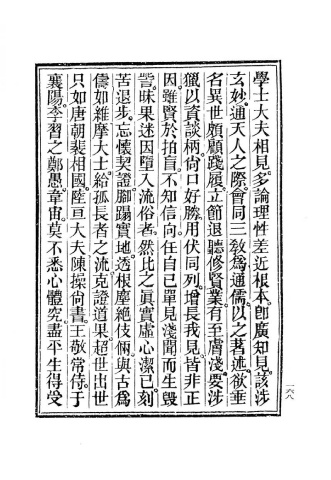 學士大夫相見。多論理性差近根本。卽廣知見。該涉
玄妙。通天人之際。會同三敎爲通儒。以之茗述。欲垂
名異世。頗顧踐履。立節退聽。修賢業。有至膚淺。要涉
獵以資談柄。尙口好勝。用伏同列。增長我見。皆非正
因。雖賢於拍盲。不知信向。任自己單見淺聞而生毀
訾。昧果迷因。墮入流俗者。然比之眞實虛心潔己。刻
苦退步。忘懷契證。脚蹋實地。透根塵。絶伎倆。與古爲
儔。如維摩大士。給孤長者之流。克證道果。超世出世。
只如唐朝裴相國。陸亘大夫。陳操尙書。王敬常侍。于
襄陽。李習之。鄭愚。韋宙。莫不悉心體究。盡平生得受
一六八